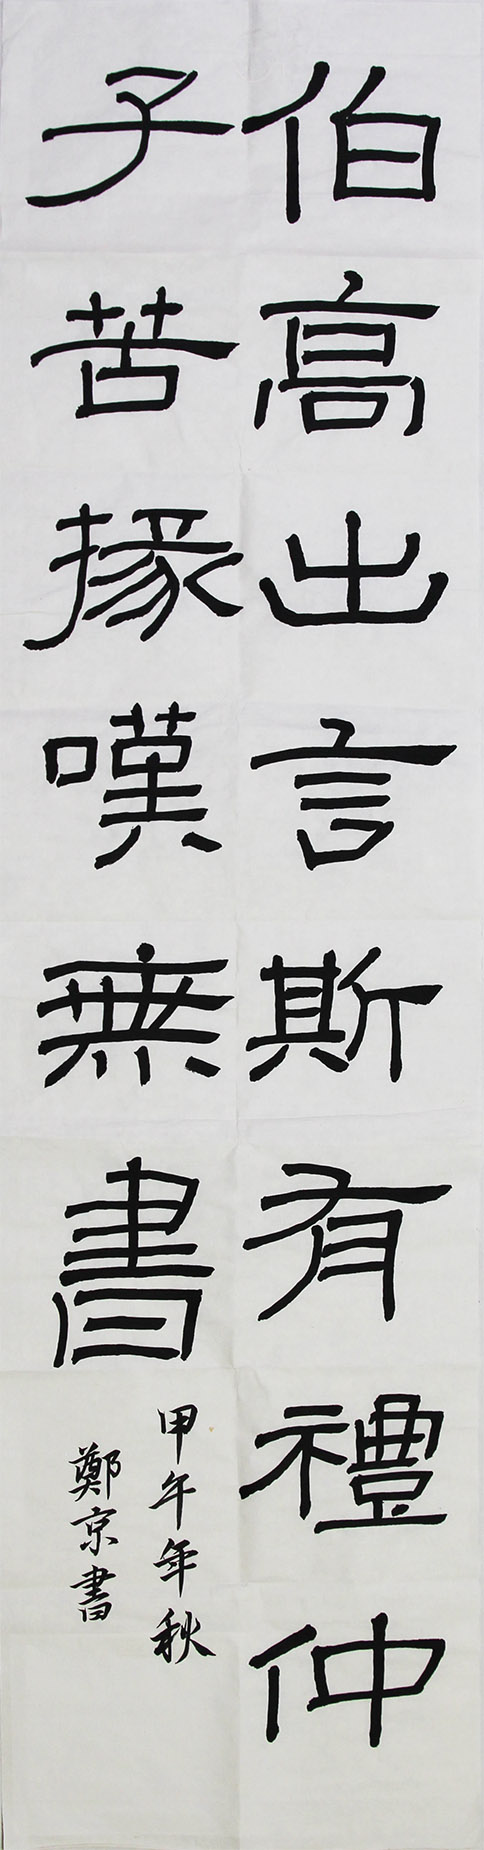 伯高出言斯有禮仲
子苦掾嘆無書
甲午年秋
鄭京書